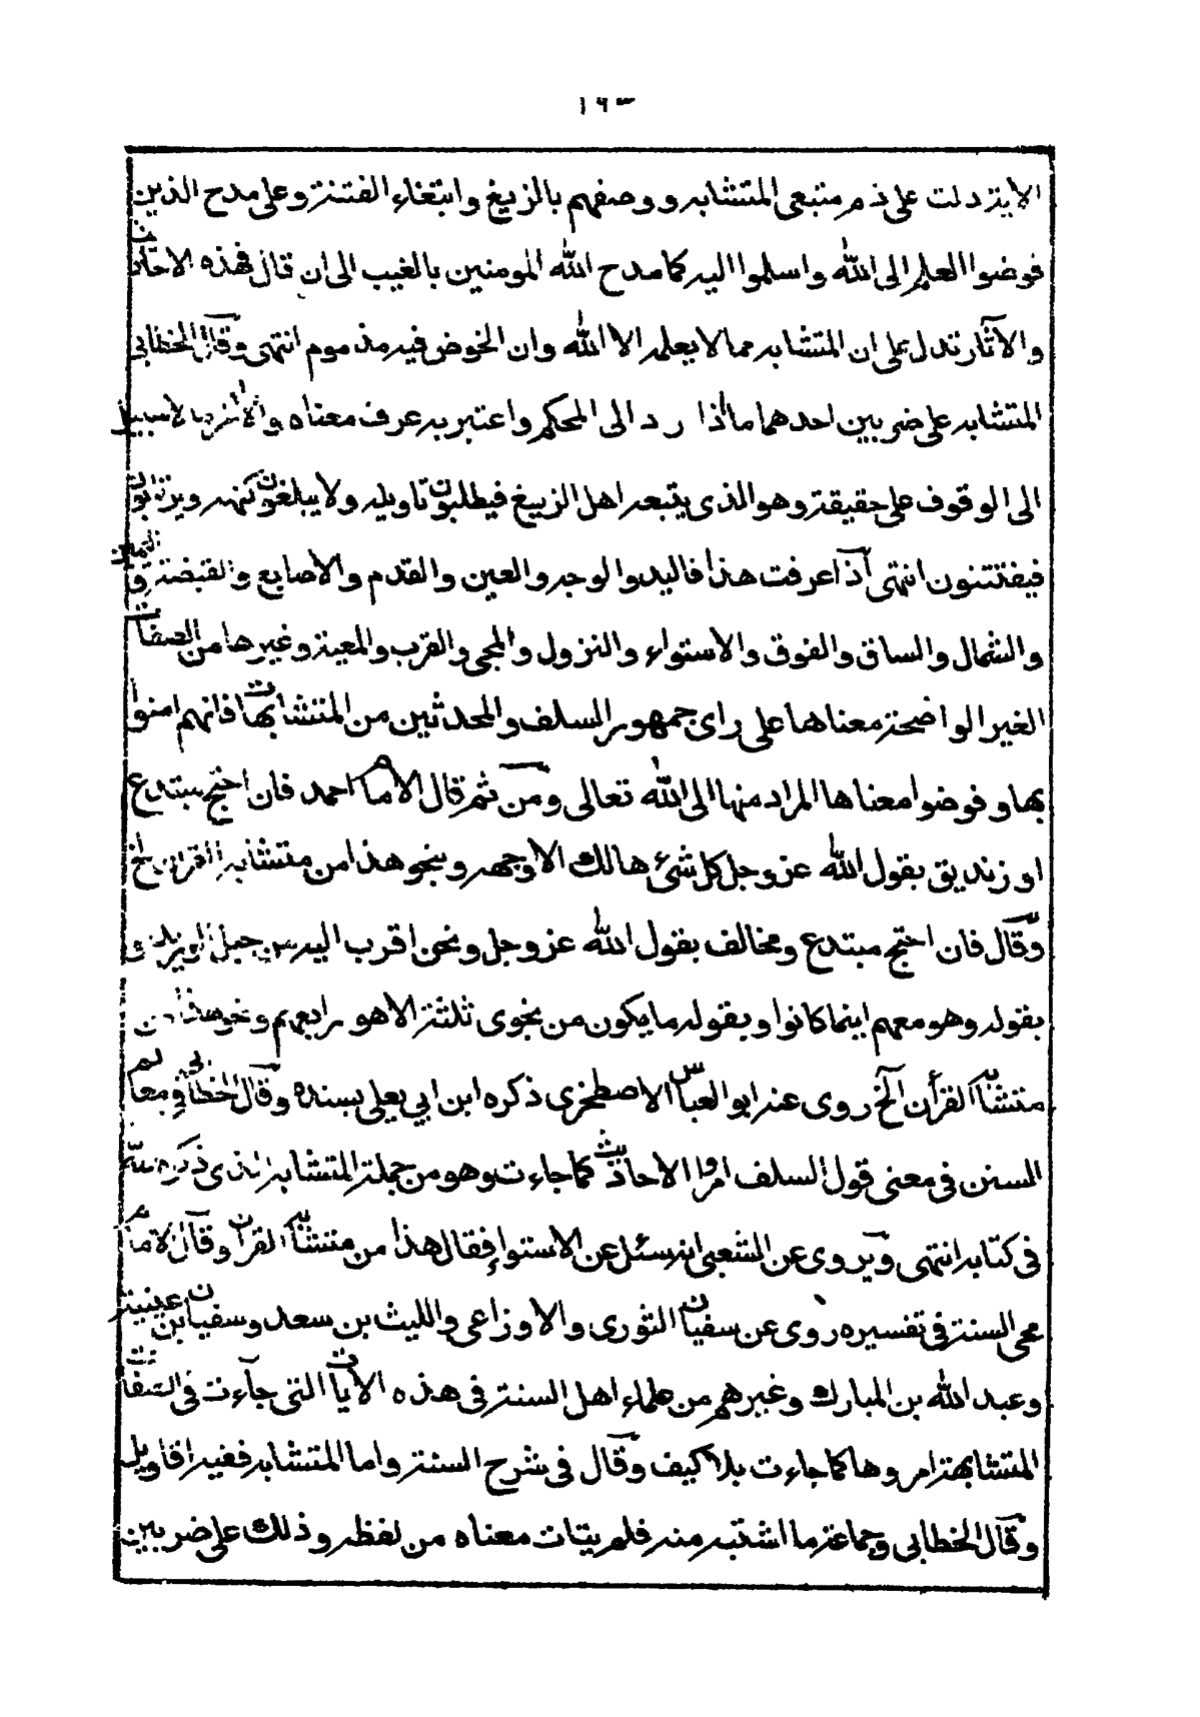 ١٦٣
الاية دلت على ذم متبعى المتشابه ووصفهم بالزيغ وابتغاء الفتنة وعلى مدح الذين
فوضوا العلم الى الله واسلموا اليه كما مدح الله المومنين بالغيب الى ان قال فهذه الاحاديث
والآثار تدل على ان المتشابه مما لا يعلمه الا الله وان الخوض فيه مذموم انتهى وقال الخطابى
المتشابه على ضربين احدهما ما اذا رد الى المحكم واعتبر به عرف معناه والآخر ما لا سبيل
الى الوقوف على حقيقته وهو الذى يتبعه اهل الزيغ فيطلبون تاويله ولا يبلغون كنهه ويرتابون
فيفتتنون انتهى اذا عرفت هذا فاليد والوجه والعين والقدم والاصابع والقبضة واليمين
والشمال والساق والفوق والاستواء والنزول والمجى والقرب والمعية وغيرها من الصفات
الغير الواضحة معناها على راى جمهور السلف والمحدثين من المتشابهات فانهم امنوا
بها وفوضوا معناها المراد منها الى الله تعالى ومن ثم قال الامام احمد فان احتج مبتدع
او زنديق بقول الله عز وجل كل شئ هالك الا وجهه وبنحو هذا من متشابه القران الخ
وقال فان احتج مبتدع ومخالف بقول الله عز وجل ونحن اقرب اليه من حبل الوريد و
بقوله وهو معهم اينما كانوا وبقوله ما يكون من نجوى ثلثة الا هو رابعهم ونحو هذا من
متشابه القرآن الخ روى عنه ابو العباس الاصطخرى ذكره ابن ابي يعلى بسنده وقال الخطابى فى معالم
السنن فى معنى قول السلف امروا الاحاديث كما جاءت وهو من جملة المتشابه الذى ذكره الله
فى كتابه انتهى ويروى عن الشعبى انه سئل عن الاستواء فقال هذا من متشابه القران وقال الامام
محى السنة فى تفسيره روى عن سفيان الثورى والاوزاعى والليث بن سعد وسفيان بن عيينة
وعبد الله بن المبارك وغيرهم من علماء اهل السنة فى هذه الآيات التى جآءت فى الصفات
المتشابهة امروها كما جاءت بلا كيف وقال فى شرح السنة واما المتشابه ففيه اقاويل
وقال الخطابى وجماعة ما اشتبه منه فلم يتات معناه من لفظه وذلك على ضربين